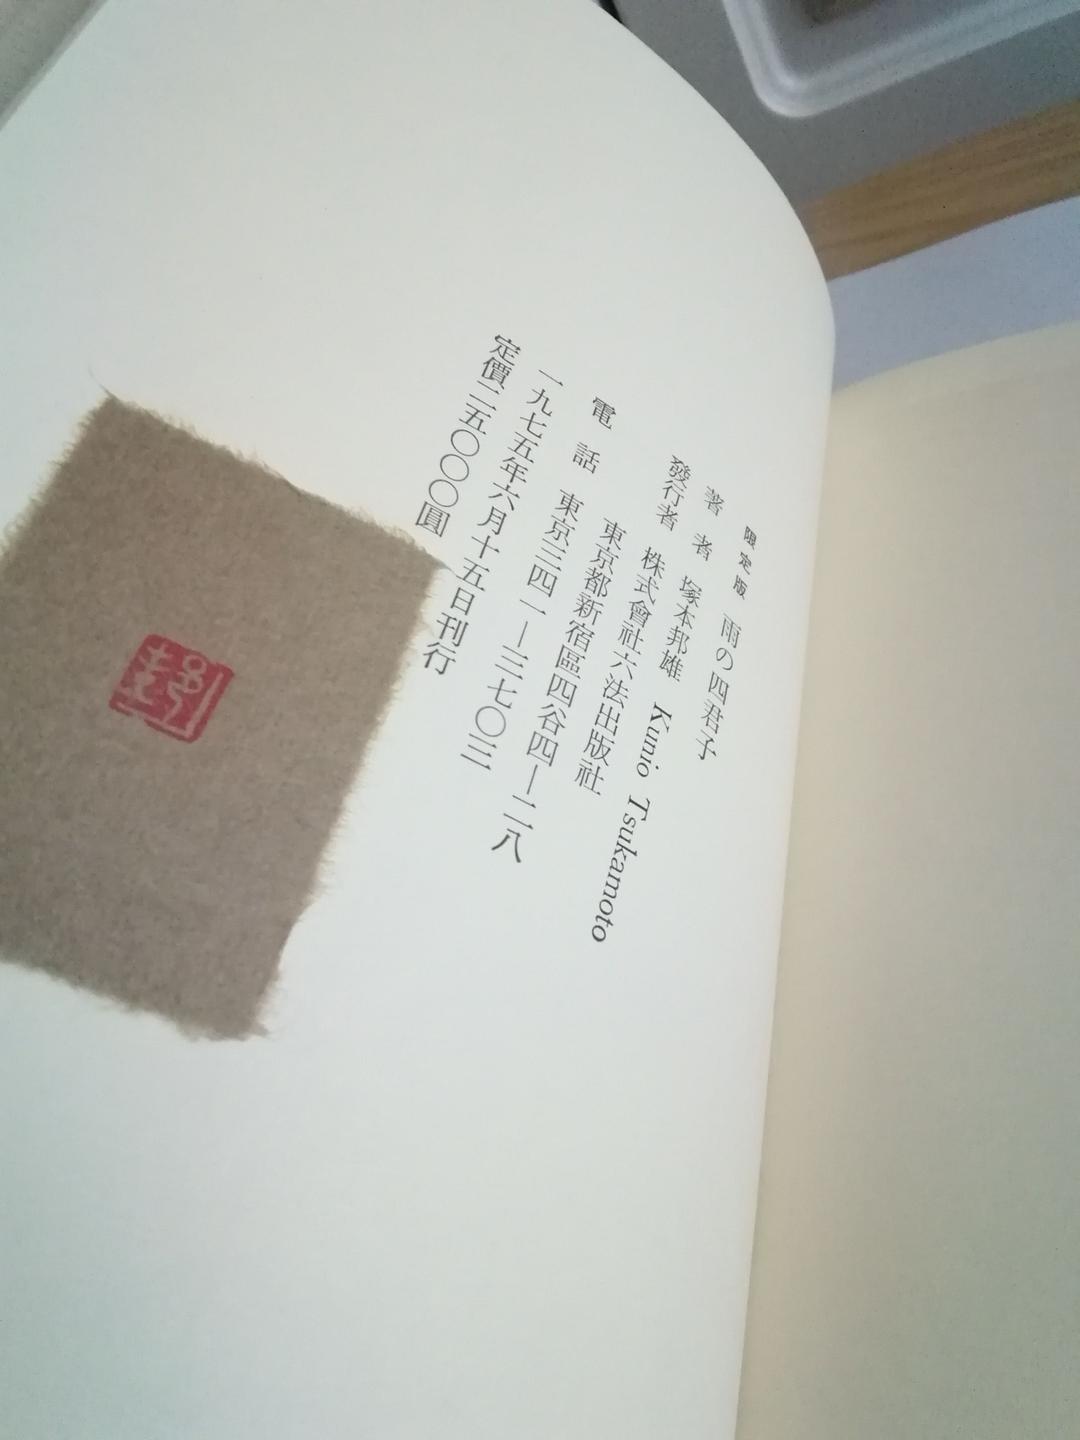 限定版 雨の四君子
著者 塚本邦雄 Kunio Tsukamoto
發行者 株式會社六法出版社
東京都新宿區四谷四ー二八
電話 東京三四一ー三七〇三
一九七五年六月十五日刊行
定價二五〇〇〇圓